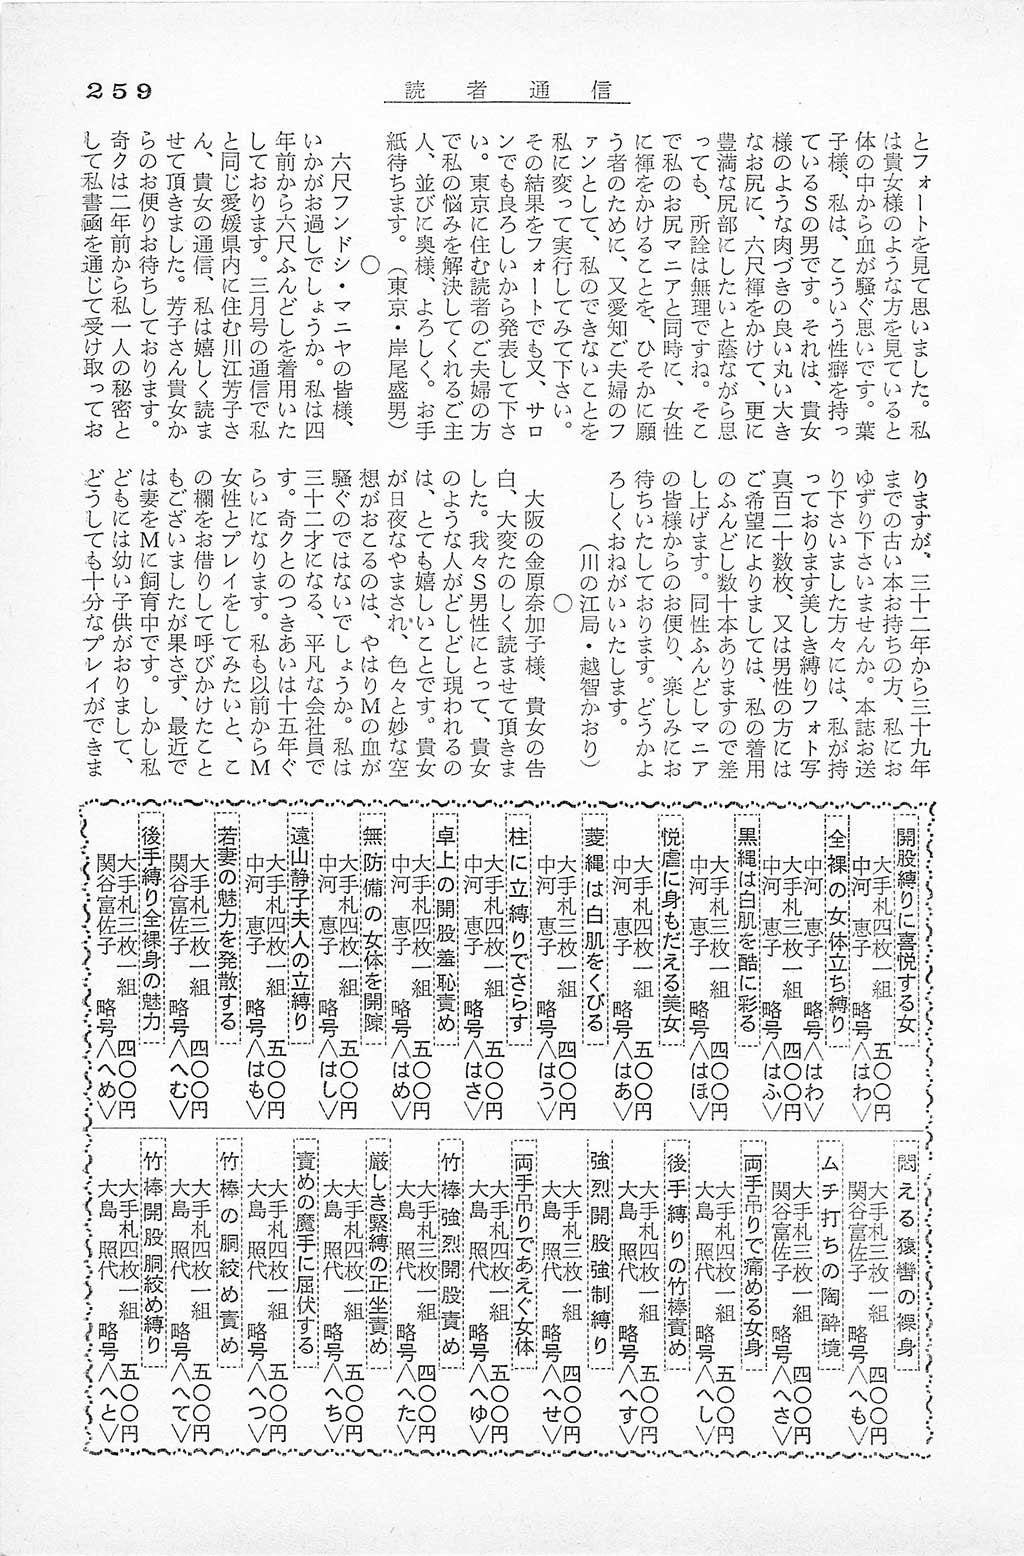 259
読者通信
とフォートを見て思いました。私
は貴女様のような方を見ていると
体の中から血が騒ぐ思いです。葉
子様、私は、こういう性癖を持っ
ているＳの男です。それは、貴女
様のような肉づきの良い丸い大き
なお尻に、六尺褌をかけて、更に
豊満な尻部にしたいと蔭ながら思
っても、所詮は無理ですね。そこ
で私のお尻マニアと同時に、女性
に褌をかけることを、ひそかに願
う者のために、又愛知ご夫婦のフ
ァンとして、私のできないことを
私に変って実行してみて下さい。
その結果をフォートでも又、サロ
ンでも良ろしいから発表して下さ
い。東京に住む読者のご夫婦の方
で私の悩みを解決してくれるご主
人、並びに奥様、よろしく。お手
紙待ちます。（東京・岸尾盛男）
〇
六尺フンドシ・マニヤの皆様、
いかがお過しでしょうか。私は四
年前から六尺ふんどしを着用いた
しております。三月号の通信で私
と同じ愛媛県内に住む川江芳子さ
ん、貴女の通信、私は嬉しく読ま
せて頂きました。芳子さん貴女か
らのお便りお待ちしております。
奇クは二年前から私一人の秘密と
して私書函を通じて受け取ってお
りますが、三十二年から三十九年
までの古い本お持ちの方、私にお
ゆずり下さいませんか。本誌お送
り下さいました方々には、私が持
っております美しき縛りフォト写
真百二十数枚、又は男性の方には
ご希望によりましては、私の着用
のふんどし数十本ありますので差
し上げます。同性ふんどしマニア
の皆様からのお便り、楽しみにお
待ちいたしております。どうかよ
ろしくおねがいいたします。
（川の江局・越智かおり）
〇
大阪の金原奈加子様、貴女の告
白、大変たのしく読ませて頂きま
した。我々Ｓ男性にとって、貴女
のような人がどしどし現われるの
は、とても嬉しいことです。貴女
が日夜なやまされ、色々と妙な空
想がおこるのは、やはりＭの血が
騒ぐのではないでしょうか。私は
三十二才になる、平凡な会社員で
す。奇クとのつきあいは十五年ぐ
らいになります。私も以前からＭ
女性とプレイをしてみたいと、こ
の欄をお借りして呼びかけたこと
もございましたが果さず、最近で
は妻をＭに飼育中です。しかし私
どもには幼い子供がおりまして、
どうしても十分なプレイができま
開股縛りに喜悦する女
大手札四枚一組　五〇〇円
中河　恵子　略号＜はわ＞
全裸の女体立ち縛り
中河　恵子　略号＜はわ＞
大手札四枚一組　四〇〇円
中河　恵子　略号＜はふ＞
黒縄は白肌を酷に彩る
大手札三枚一組　四〇〇円
中河　恵子　略号＜はほ＞
悦虐に身もだえる美女
大手札四枚一組　五〇〇円
中河　恵子　略号＜はあ＞
菱縄は白肌をくびる
大手札三枚一組　四〇〇円
中河　恵子　略号＜はう＞
柱に立縛りでさらす
大手札四枚一組　五〇〇円
中河　恵子　略号＜はさ＞
卓上の開股羞恥責め
大手札四枚一組　五〇〇円
中河　恵子　略号＜はめ＞
無防備の女体を開陳
大手札四枚一組　五〇〇円
中河　恵子　略号＜はし＞
遠山静子夫人の立縛り
大手札四枚一組　五〇〇円
中河　恵子　略号＜はも＞
若妻の魅力を発散する
大手札三枚一組　四〇〇円
関谷富佐子　略号＜へむ＞
後手縛り全裸身の魅力
大手札三枚一組　四〇〇円
関谷富佐子　略号＜へめ＞
悶える猿轡の裸身
大手札三枚一組　四〇〇円
関谷富佐子　略号＜へも＞
ムチ打ちの陶酔境
大手札三枚一組　四〇〇円
関谷富佐子　略号＜へさ＞
両手吊りで痛める女身
大手札四枚一組　五〇〇円
大島　照代　略号＜へし＞
後手縛りの竹棒責め
大手札四枚一組　五〇〇円
大島　照代　略号＜へす＞
強烈開股強制縛り
大手札三枚一組　四〇〇円
大島　照代　略号＜へせ＞
両手吊りであえぐ女体
大手札四枚一組　五〇〇円
大島　照代　略号＜へゆ＞
竹棒強烈開股責め
大手札三枚一組　四〇〇円
大島　照代　略号＜へた＞
厳しき緊縛の正坐責め
大手札四枚一組　五〇〇円
大島　照代　略号＜へち＞
責めの魔手に屈伏する
大手札四枚一組　五〇〇円
大島　照代　略号＜へつ＞
竹棒の胴絞め責め
大手札四枚一組　五〇〇円
大島　照代　略号＜へて＞
竹棒開股胴絞め縛り
大手札四枚一組　五〇〇円
大島　照代　略号＜へと＞